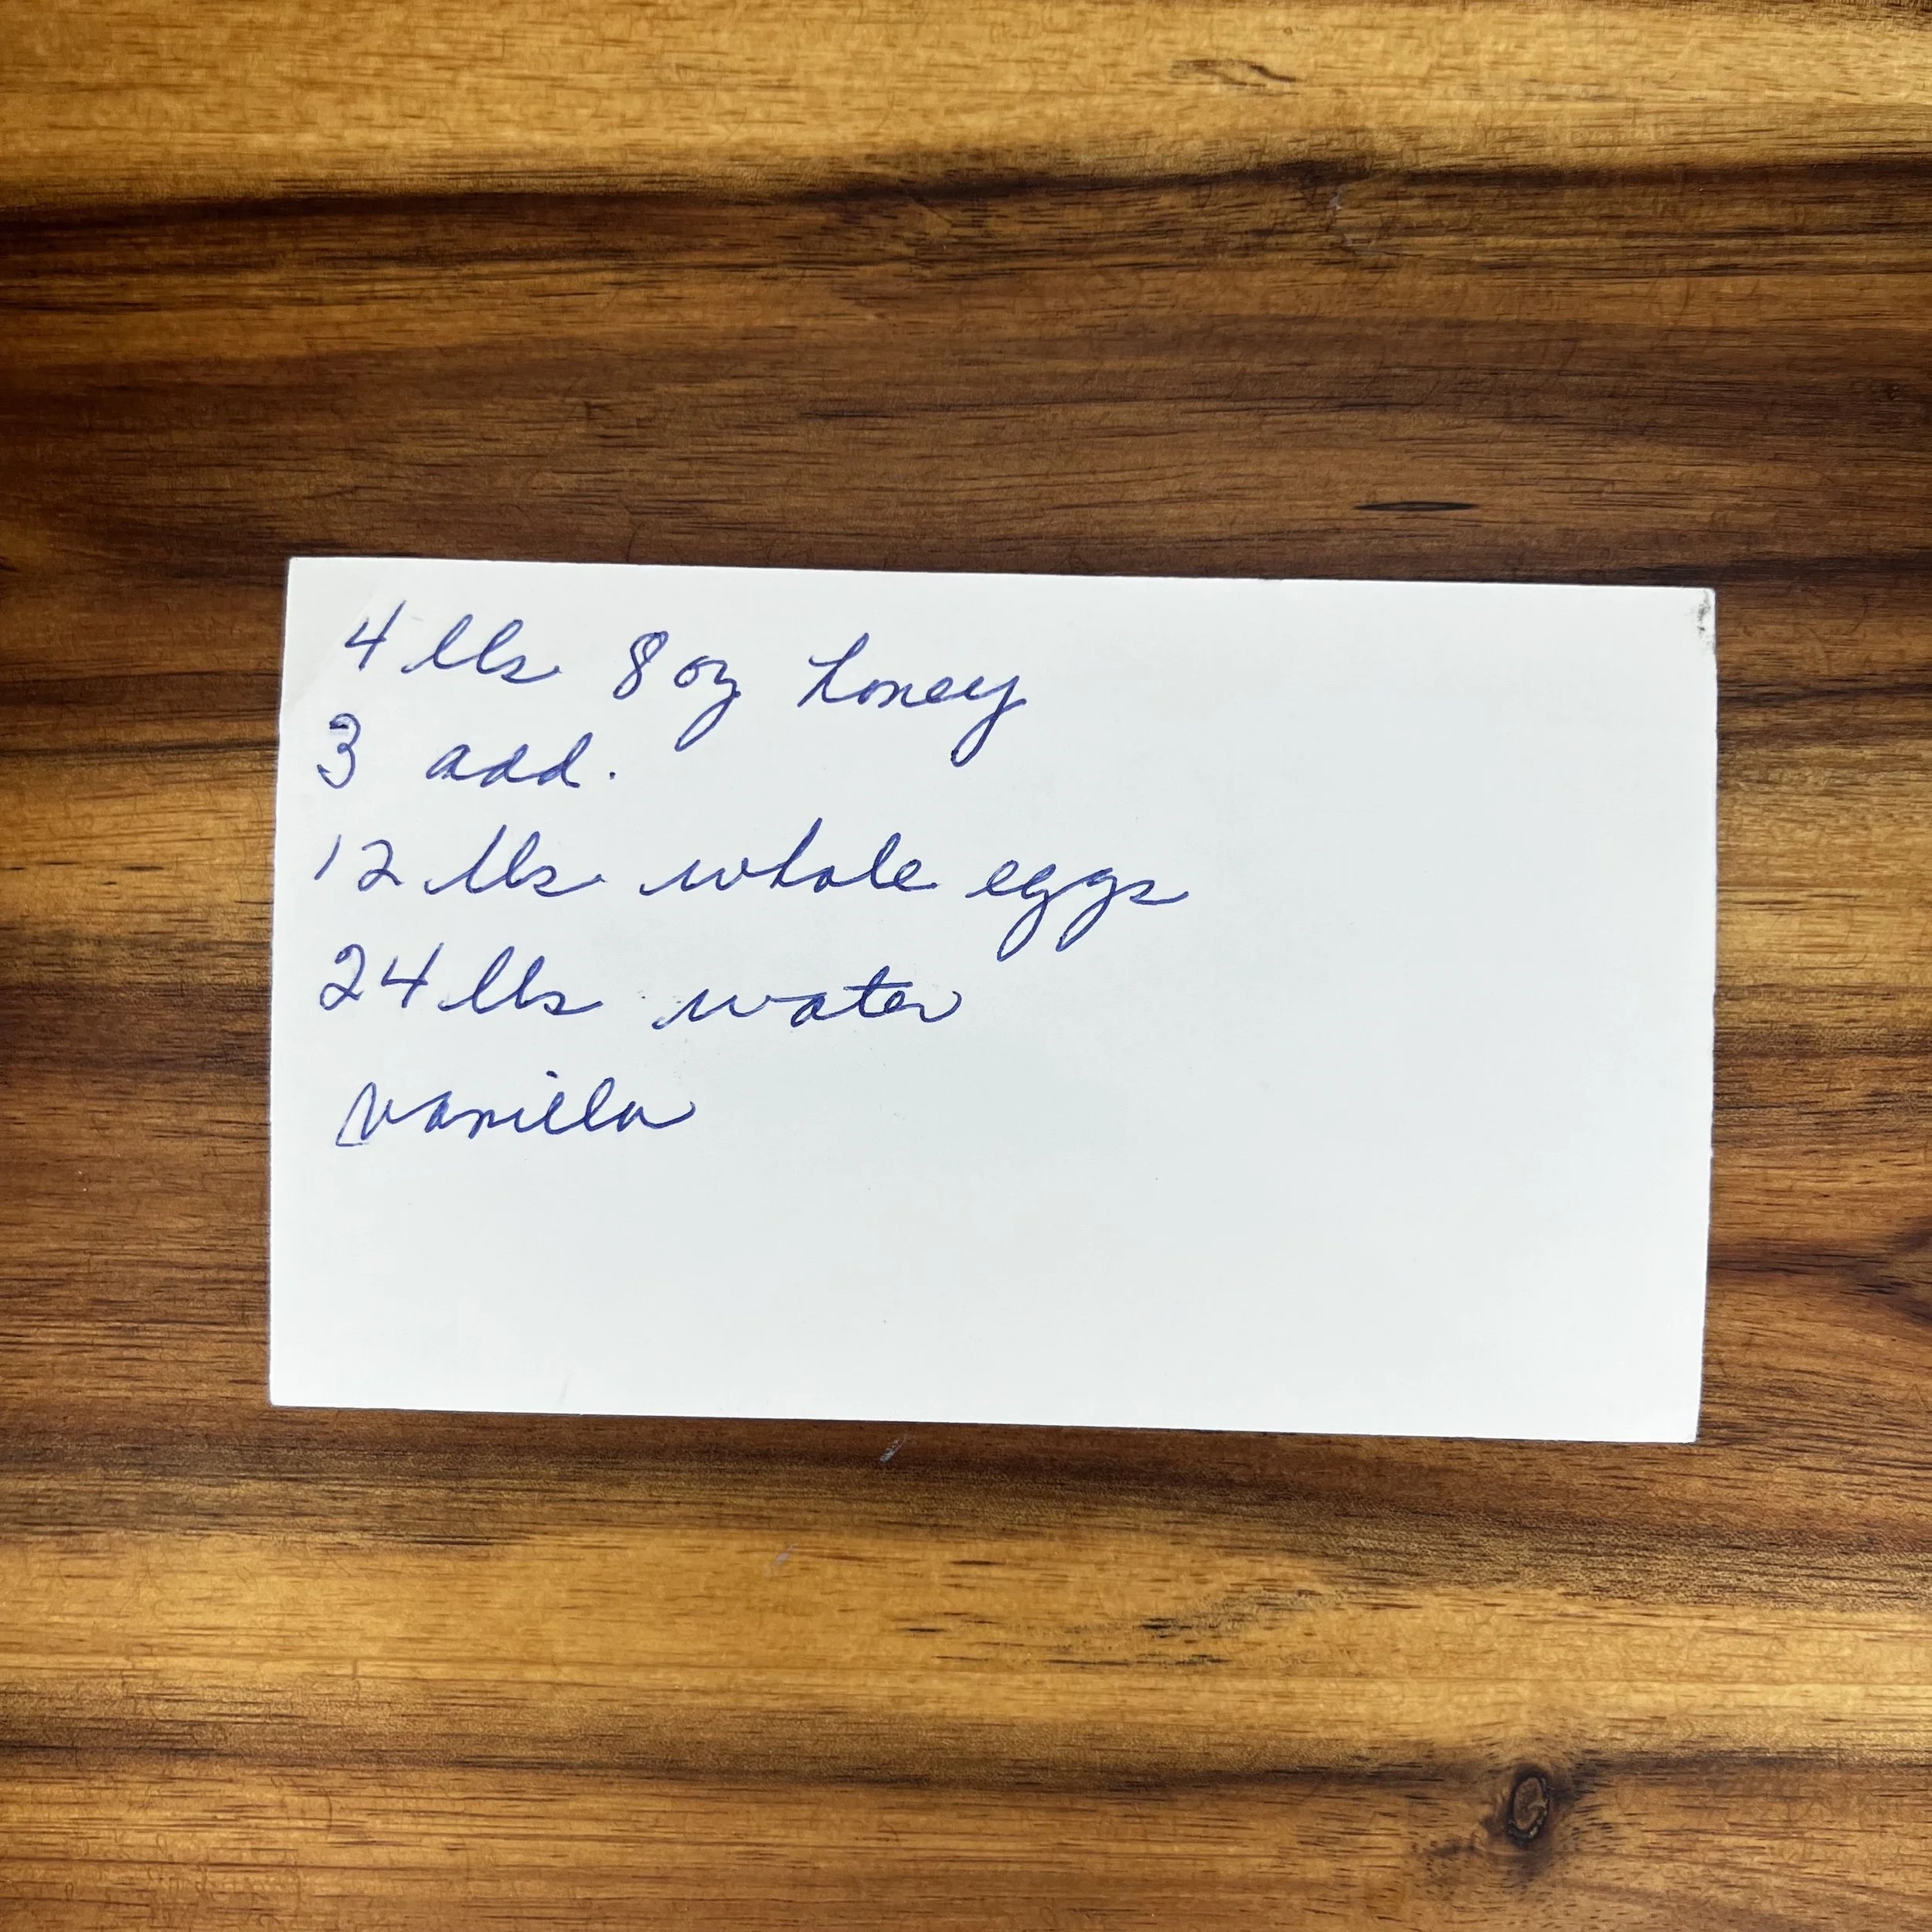 4 lbs 8 oz honey
3 add.
12 lbs whole eggs
24 lbs water
vanilla